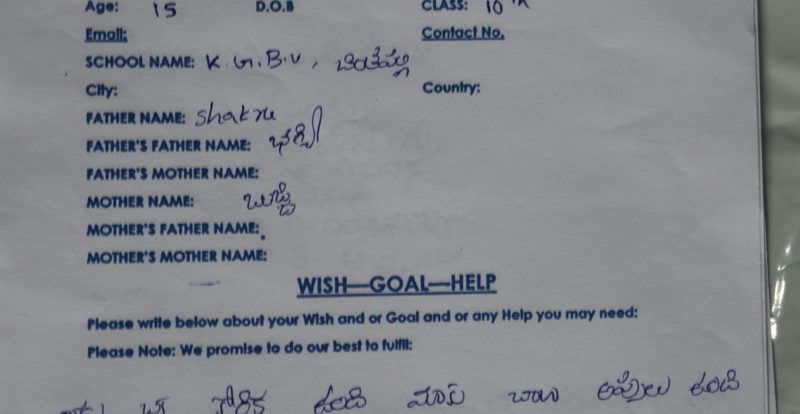 Age: 15 D.O.B CLASS: 10th
Email: Contact No.
SCHOOL NAME: K.G.B.V,
City: Country:
FATHER NAME: Shakru
FATHER'S FATHER NAME:
FATHER'S MOTHER NAME:
MOTHER NAME: బుజ్జి
MOTHER'S FATHER NAME:
MOTHER'S MOTHER NAME:
WISH—GOAL—HELP
Please write below about your Wish and or Goal and or any Help you may need:
Please Note: We promise to do our best to fulfil:
కోరిక ఉంది మాకు చాలా అప్పులు ఉండి